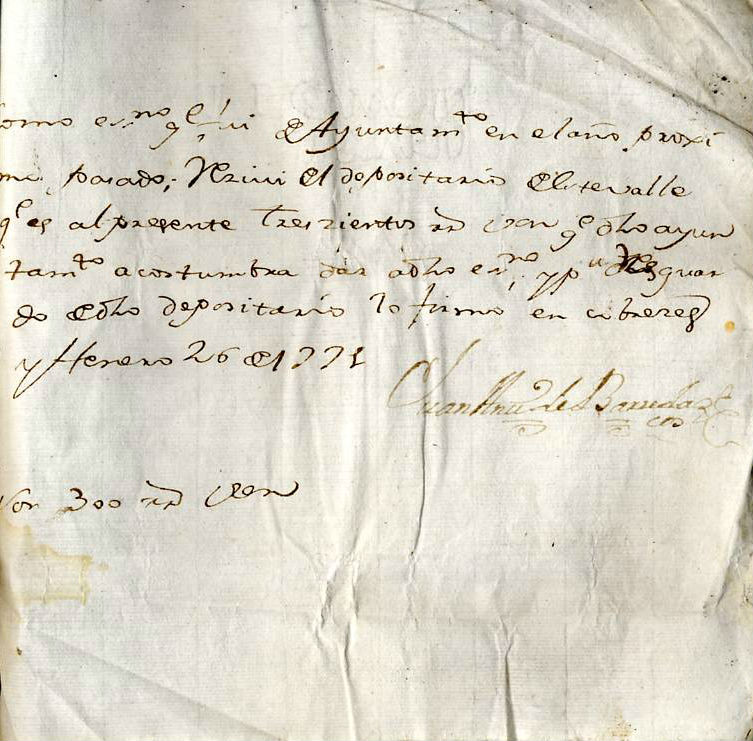 Como es.no q.e fui de Ayuntam.to en el año proxi
mo pasado; Rezivi del depositario de este valle
q.e es al presente trescientos rr.s von q.e dho ayun
tam.to acostumbra dar a dho es.no; y p.a Resguar
do de dho depositario lo firmo en cobrezes
y Henero 26 de 1771
Juan Anto de Barreda
Son 300 rr.s von